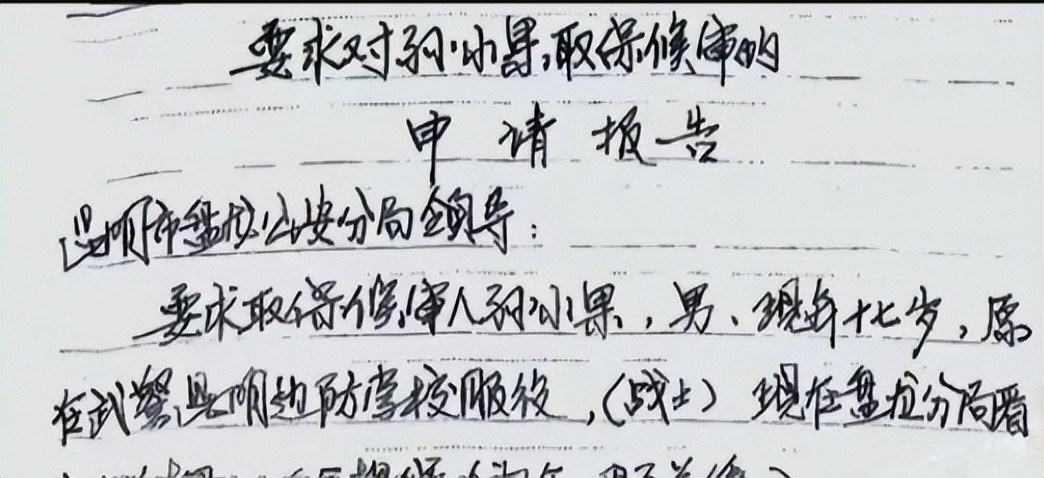 要求对孙小果取保候审的
申请报告
昆明市盘龙公安分局领导：
要求取保候审人孙小果，男、现年十七岁，原
在武警昆明边防学校服役，（战士）现在盘龙分局看